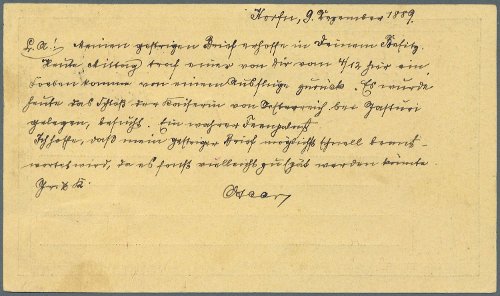 Korfu, 9. Dezember 1889.
L. A.! Meinen gestrigen Brief erhoffe in Deinem Besitz.
Heute Mittag traf einer von dir vom 4/12 hier ein,
soeben komme von einem Ausfluge zurück. Es wurde
heute das Schloß der Kaiserin von Oesterreich bei Gasturi
gelegen, besucht. Ein wahrer Feengarten
Ich hoffe, daß mein gestriger Brief möglichst schnell beant-
wortet wird, da es sonst vielleicht zu spät werden könnte.
Gruß &
Oscar